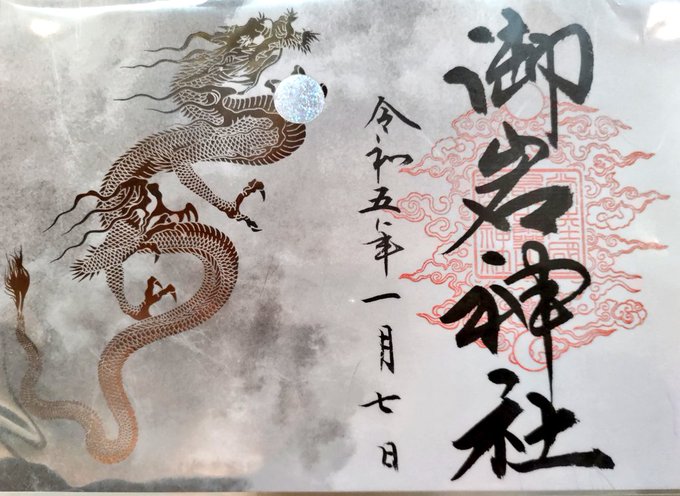 御岩神社
令和五年一月七日